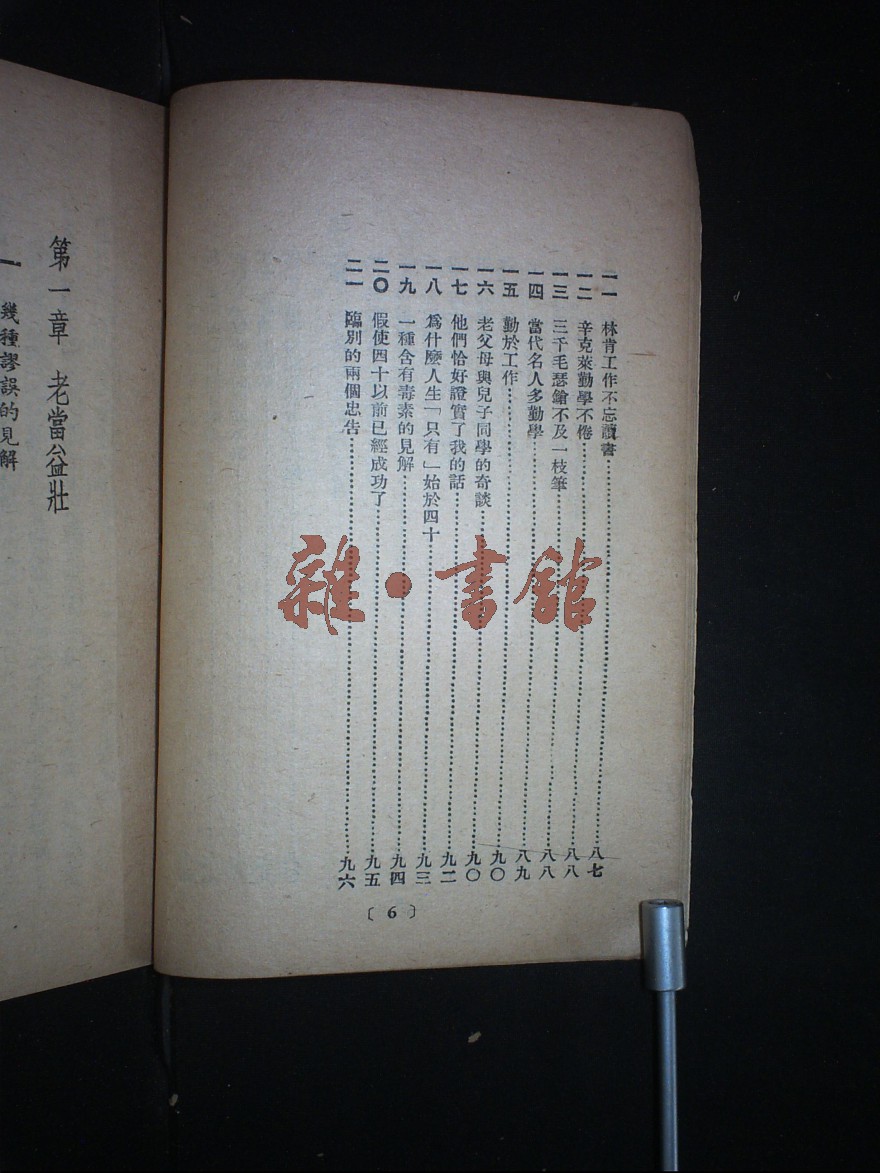 一一 林肯工作不忘讀書……八七
一二 辛克萊勤學不倦……八八
一三 三千毛瑟鎗不及一枝筆……八八
一四 當代名人多勤學……八九
一五 勤於工作……九〇
一六 老父母與兒子同學的奇談……九〇
一七 他們恰好證實了我的話……九二
一八 爲什麼人生「只有」始於四十……九三
一九 一種含有毒素的見解……九四
二〇 假使四十以前已經成功了……九五
二一 臨別的兩個忠告……九六
〔6〕
第一章 老當益壯
一 幾種謬誤的見解
雜·書館